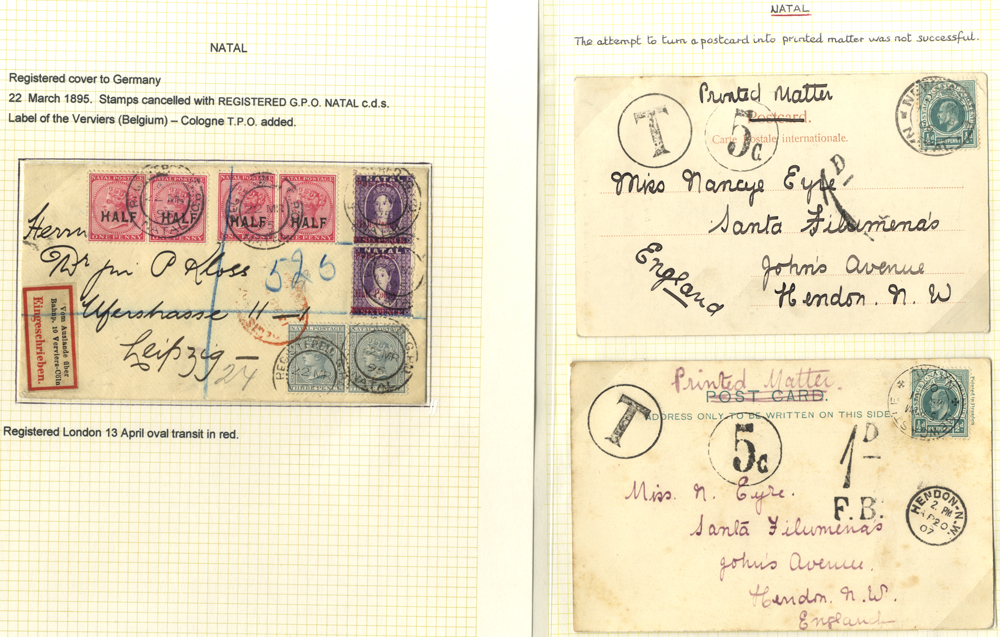 NATAL
Registered cover to Germany
22 March 1895. Stamps cancelled with REGISTERED G.P.O. NATAL c.d.s.
Label of the Verviers (Belgium) – Cologne T.P.O. added.
NATAL POSTAGE
HALF HALF HALF HALF
ONE PENNY
NATAL
SIX PENCE
NATAL
SIX PENCE
Herrn
P Kloss
526
II
Leipzig –
24
Vom Auslande über
Bahnp. 10 Verviers-Cöln
Eingeschrieben.
REGISTERED G.P.O. NATAL
Registered London 13 April oval transit in red.
NATAL
The attempt to turn a postcard into printed matter was not successful.
Printed Matter
Postcard.
Carte postale internationale.
T
5c
1D
Miss Nancye Eyre
Santa Filumena's
John's Avenue
Hendon. N. W
England
Printed Matter.
POST CARD.
ADDRESS ONLY TO BE WRITTEN ON THIS SIDE.
T
5c
1D
F.B.
HENDON-N.W.
2. PM
AP 20
07
Miss. N. Eyre.
Santa Filumenas
John's Avenue.
Hendon. N. W.
England